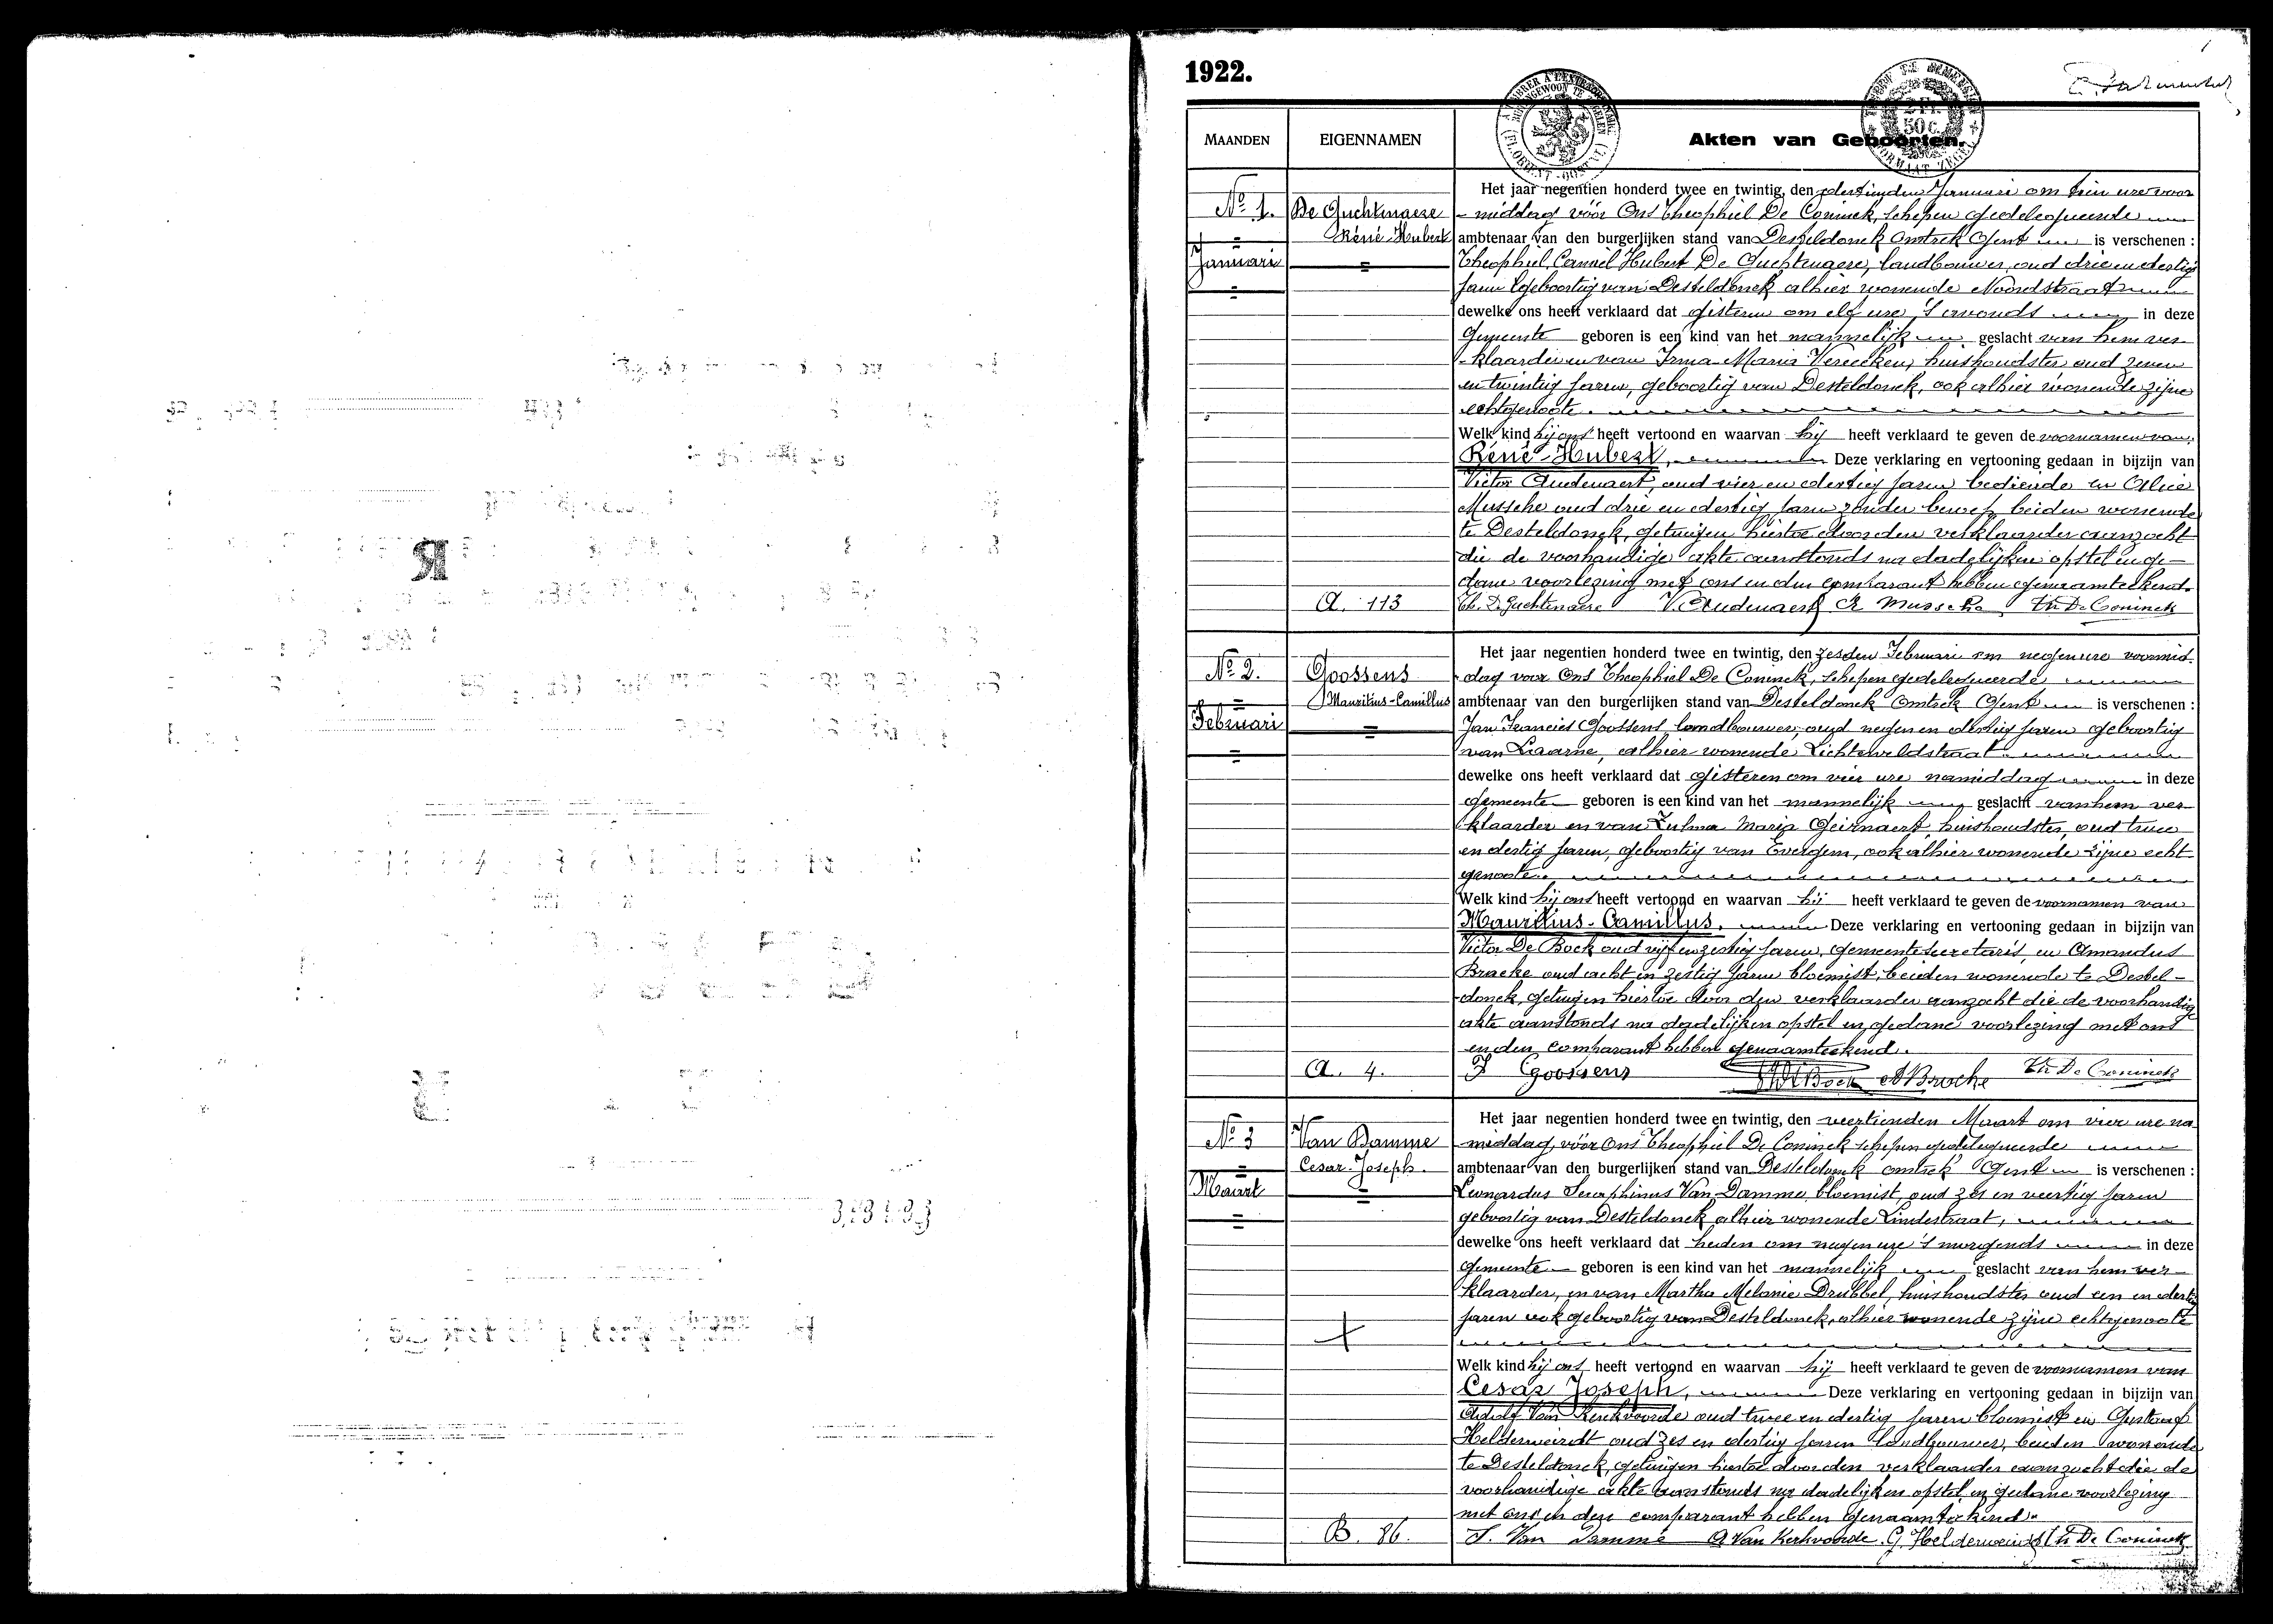 1922.
MAANDEN
EIGENNAMEN
Akten van Geboorten.
Het jaar negentien honderd twee en twintig, den dertienden Januari om tien ure voor
Nº 1.
De Guchtenaere
- middag vóór Ons Theophiel De Coninck, schepen gedelegueerde
René-Hubert
ambtenaar van den burgerlijken stand van Desteldonck Omtrek Gent is verschenen :
Januari
Theophiel Camiel Hubert De Guchtenaere, landbouwer, oud drie en dertig
jaren geboortig van Desteldonck alhier wonende Noordstraat
dewelke ons heeft verklaard dat gisteren om elf ure 's avonds in deze
gemeente geboren is een kind van het mannelijk geslacht van hem ver-
-klaarder en van Irma-Maria Vereecken, huishoudster oud zeven
en twintig jaren, geboortig van Desteldonck, ook alhier wonende zijne
echtgenoote.
Welk kind hij ons heeft vertoond en waarvan hij heeft verklaard te geven de voornamen van
René-Hubert, Deze verklaring en vertooning gedaan in bijzijn van
Victor Audenaert, oud vier en dertig jaren bediende en Alice
Mussche oud drie en dertig jaren zonder beroep beiden wonende
te Desteldonck, getuigen hiertoe door den verklaarder aanzocht
die de voorhandige akte aanstonds na dadelijken opstel en ge-
dane voorlezing met ons en den comparant hebben genaamteekend.
A. 113
Th. De Guchtenaere V. Audenaert A Mussche Th De Coninck
Het jaar negentien honderd twee en twintig, den zesden Februari om negen ure voormid-
Nº 2.
Goossens
-dag voor Ons Theophiel De Coninck, schepen gedelegueerde
Mauritius-Camillus
ambtenaar van den burgerlijken stand van Desteldonck Omtrek Gent is verschenen :
Februari
Jan Francies Goossens landbouwer, oud negen en dertig jaren geboortig
van Laarne, alhier wonende Lichtelveldstraat
dewelke ons heeft verklaard dat gisteren om vier ure namiddag in deze
gemeente geboren is een kind van het mannelijk geslacht van hem ver-
klaarder en van Zulma Maria Geirnaert, huishoudster, oud twee
en dertig jaren, geboortig van Evergem, ook alhier wonende zijne echt-
genoote.
Welk kind hij ons heeft vertoond en waarvan hij heeft verklaard te geven de voornamen van
Mauritius-Camillus. Deze verklaring en vertooning gedaan in bijzijn van
Victor De Bock oud vijf en zestig jaren, gemeentesecretaris, en Amandus
Bracke oud acht en zestig jaren bloemist, beiden wonende te Destel-
-donck, getuigen hiertoe door den verklaarder aanzocht die de voorhandige
akte aanstonds na dadelijken opstel en gedane voorlezing met ons
en den comparant hebben genaamteekend.
A. 4.
J Goossens De Bock A Bracke Th De Coninck
Het jaar negentien honderd twee en twintig, den veertienden Maart om vier ure na
Nº 3
Van Damme
-middag, vóór Ons Theophiel De Coninck schepen gedelegueerde
Cesar-Joseph.
ambtenaar van den burgerlijken stand van Desteldonck omtrek Gent is verschenen :
Maart
Leonardus Seraphinus Van Damme, bloemist, oud zes en veertig jaren
geboortig van Desteldonck alhier wonende Lindestraat,
dewelke ons heeft verklaard dat heden om negen ure 's morgends in deze
gemeente geboren is een kind van het mannelijk geslacht van hem ver-
klaarder, en van Martha Melanie Drubbel, huishoudster oud een en dertig
jaren ook geboortig van Desteldonck, alhier wonende zijne echtgenoote
Welk kind hij ons heeft vertoond en waarvan hij heeft verklaard te geven de voornamen van
Cesar Joseph, Deze verklaring en vertooning gedaan in bijzijn van
Adolf Van Kerkvoorde oud twee en dertig jaren bloemist en Gustaaf
Helderweirdt oud zes en dertig jaren landbouwer, beiden wonende
te Desteldonck, getuigen hiertoe door den verklaarder aanzocht die de
voorhandige akte aanstonds na dadelijken opstel en gedane voorlezing
met ons en den comparant hebben genaamteekend.
B. 86.
S. Van Damme A Van Kerkvoorde. G. Helderweirdt Th De Coninck